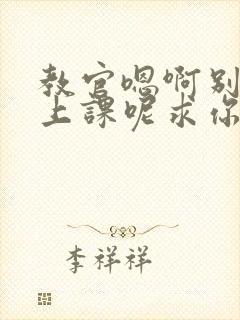 教官嗯啊别
上課呢求你
李祥祥